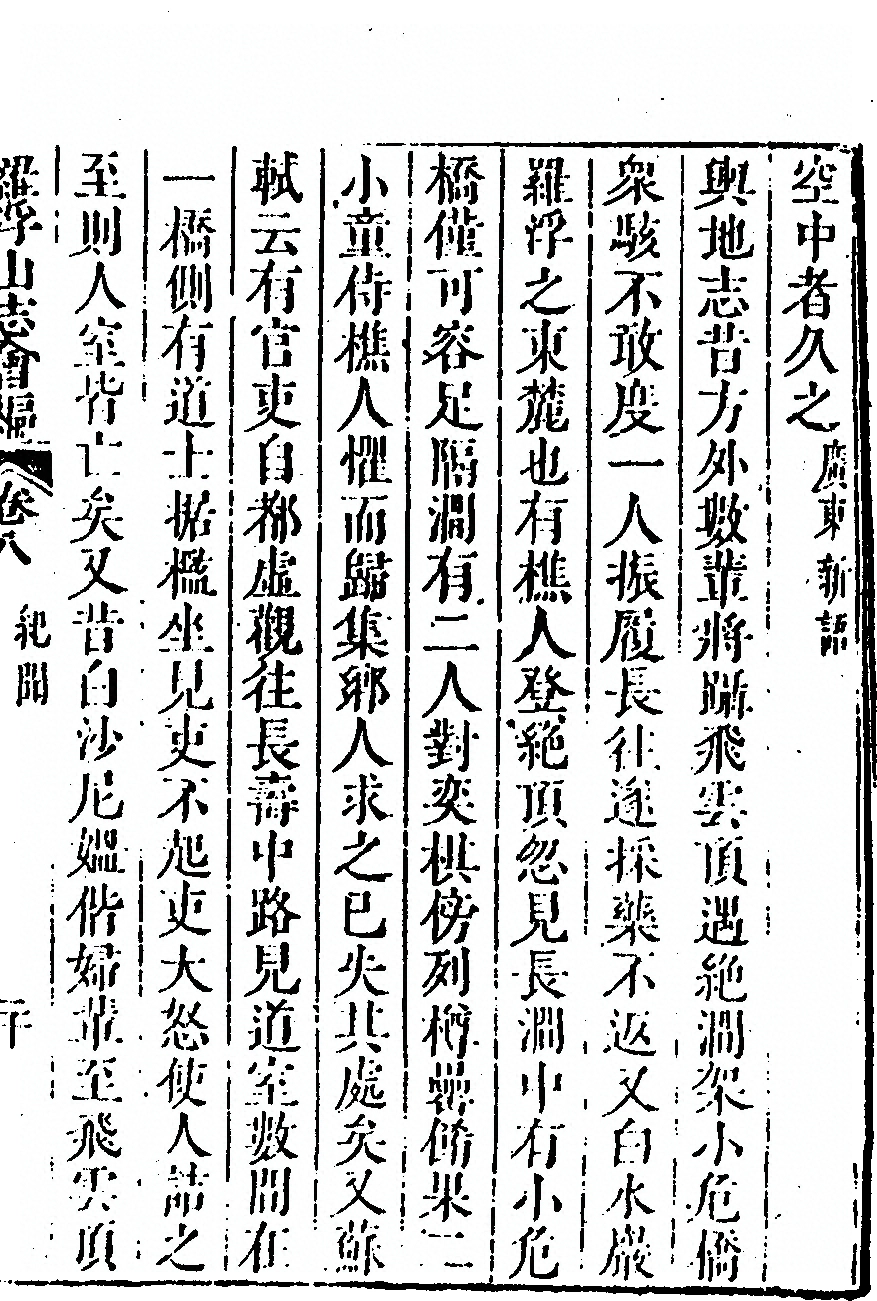 空中者久之廣東新語
輿地志昔方外數輩將躡飛雲頂遇絕澗架小危橋
衆駭不敢度一人振履長往遂採藥不返又白水巖
羅浮之東麓也有樵人登絕頂忽見長澗中有小危
橋僅可容足隔澗有二人對奕棋傍列樽罍脩果二
小童侍樵人懼而歸集鄉人求之已失其處矣又蘇
軾云有官吏自都虛觀往長壽中路見道室數間在
一橋側有道士据檻坐見吏不起吏大怒使人詰之
至則人室皆亡矣又昔白沙尼媼偕婦輩至飛雲頂
羅浮山志會編 卷八 紀聞